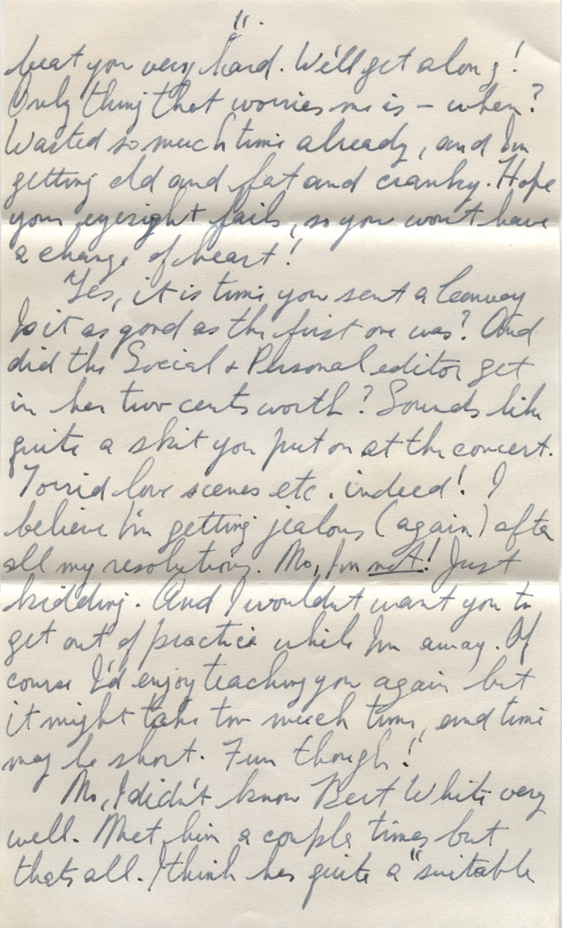 11.
beat you very hard. We'll get along!
Only thing that worries me is – when?
Wasted so much time already, and I'm
getting old and fat and cranky. Hope
your eyesight fails, so you won't have
a change of heart!
Yes, it is time you sent a
Is it as good as the first one was? And
did the Social & Personal editor get
in her two cents worth? Sounds like
quite a skit you put on at the concert.
Torrid love scenes etc. indeed! I
believe I'm getting jealous (again) after
all my resolutions. No, I'm not! Just
kidding. And I wouldn't want you to
get out of practice while I'm away. Of
course I'd enjoy teaching you again but
it might take too much time, and time
may be short. Fun though!
No, I didn't know Bert White very
well. Met him a couple times but
thats all. I think hes quite a "suitable